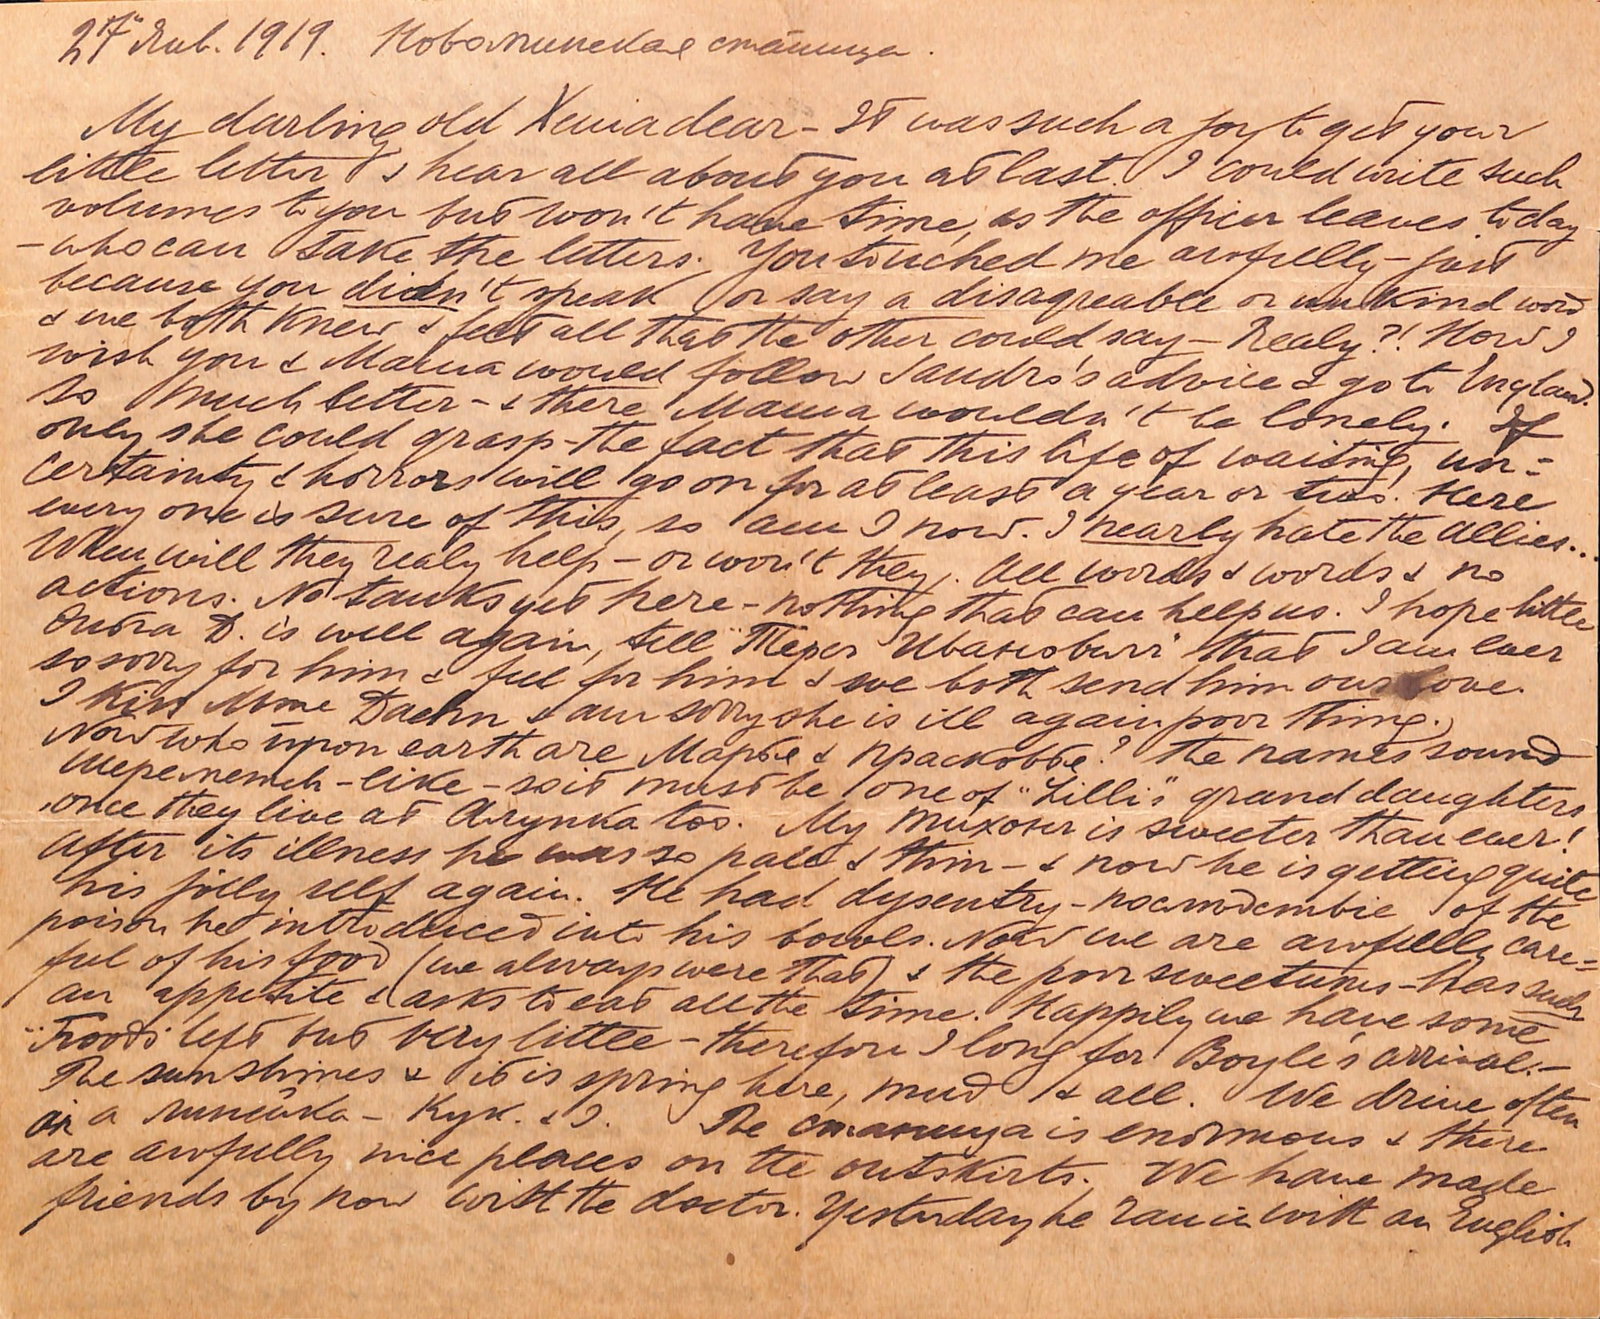 27го Янв. 1919. Новоминская станица.
My darling old Xenia dear - It was such a joy to get your
little letter & hear all about you at last. I could write such
volumes to you but won't have time, as the officer leaves today
- who can take the letters. You touched me awfully - just
because you didn't speak or say a disagreable or unkind word
& we both knew & feel all that the other could say - Realy?! How I
wish you & Mama would follow Sandro's advice & go to England.
So much better - & there Mama wouldn't be lonely. If
only she could grasp the fact that this life of waiting, un=
certainty & horrors will go on for at least a year or two. Here
every one is sure of this, so am I now. I nearly hate the Allies...
When will they realy help - or won't they. All words & words & no
actions. No tanks yet here - nothing that can help us. I hope little
D. is well again, tell "Петр Иванович" that I am ever
so sorry for him & feel for him & we both send him our love.
I kiss Mme Daehn & am sorry she is ill again poor thing.
Now who upon earth are Марфе & Прасковье? the names sound
Шереметев-like - so it must be one of "Lilli's" grand daughters
once they live at too. My Тихон is sweeter than ever!
After its illness he was so pale & thin - & now he is getting quite
his jolly self again. He had dysentry - of the
poison he introduced into his bowls. Now we are awfully care=
ful of his food (we always were that) & the poor sweetums - has such
an appetite & asks to eat all the time. Happily we have some
"Foods" left but very little - therefore I long for Boyle's arrival. -
The sun shines & it is spring here, mud & all. We drive often
in a линейка - Кук. & I. The станица is enormous & there
are awfully nice places on the outskirts. We have made
friends by now with the doctor. Yesterday he ran in with an English